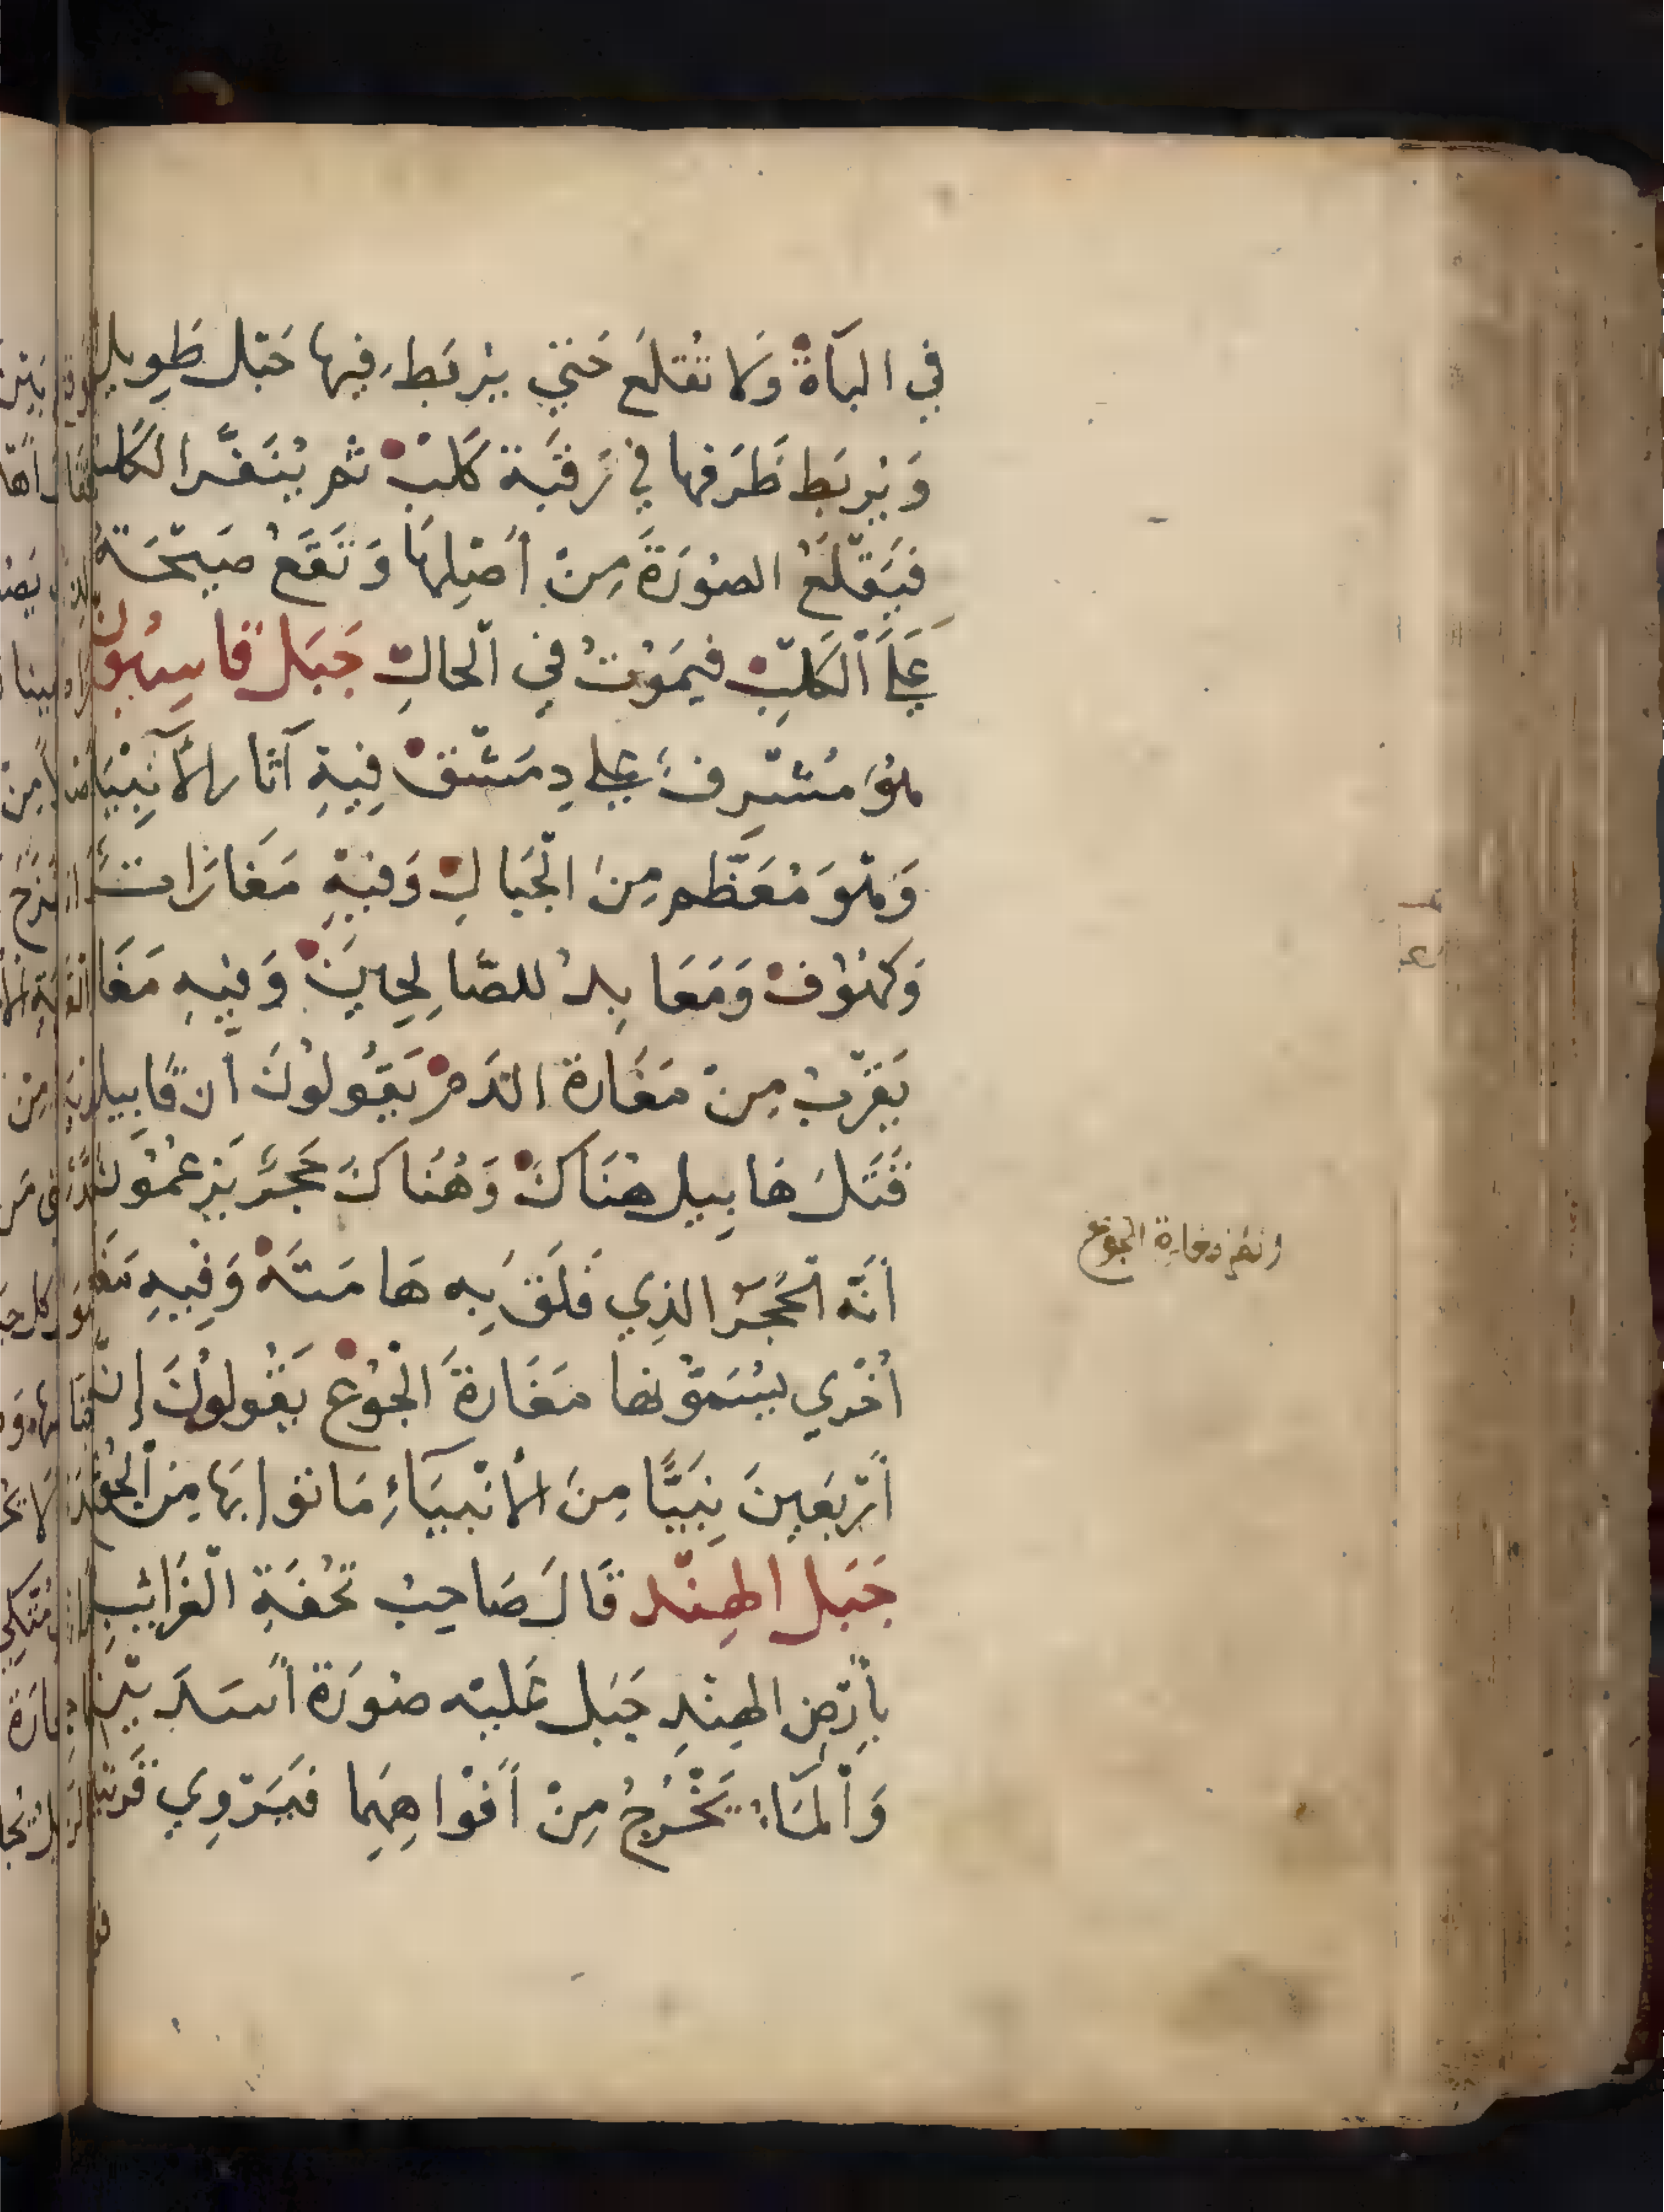 في الباة ولا تقلع حتي يربط فيها حبل طويل
ويربط طرفها في رقبة كلب ثم ينفر الكلب
فيقلع الصورة من اصلها وتقع صيحة
علي الكلب فيموت في الحال جبل قاسيون
هو مشرف علي دمشق فيه آثار الأنبيا
وهو معظم من الجبال وفيه مغارات
وكهوف ومعابد للصالحين وفيه مغا
يقرب من مغارة الدم يقولون ان قابيل
قتل هابيل هناك وهناك حجر يزعمون
أنه الحجر الذي فلق به هامته وفيه مغا
أخري يسمونها مغارة الجوع يقولون إن
أربعين نبيا من الأنبياء ماتوا بها من الجوع
جبل الهند قال صاحب تحفة الغرايب
بأرض الهند جبل عليه صورة أسدين
والماء يخرج من أفواههما فيروي قريتين
مغارة الجوع